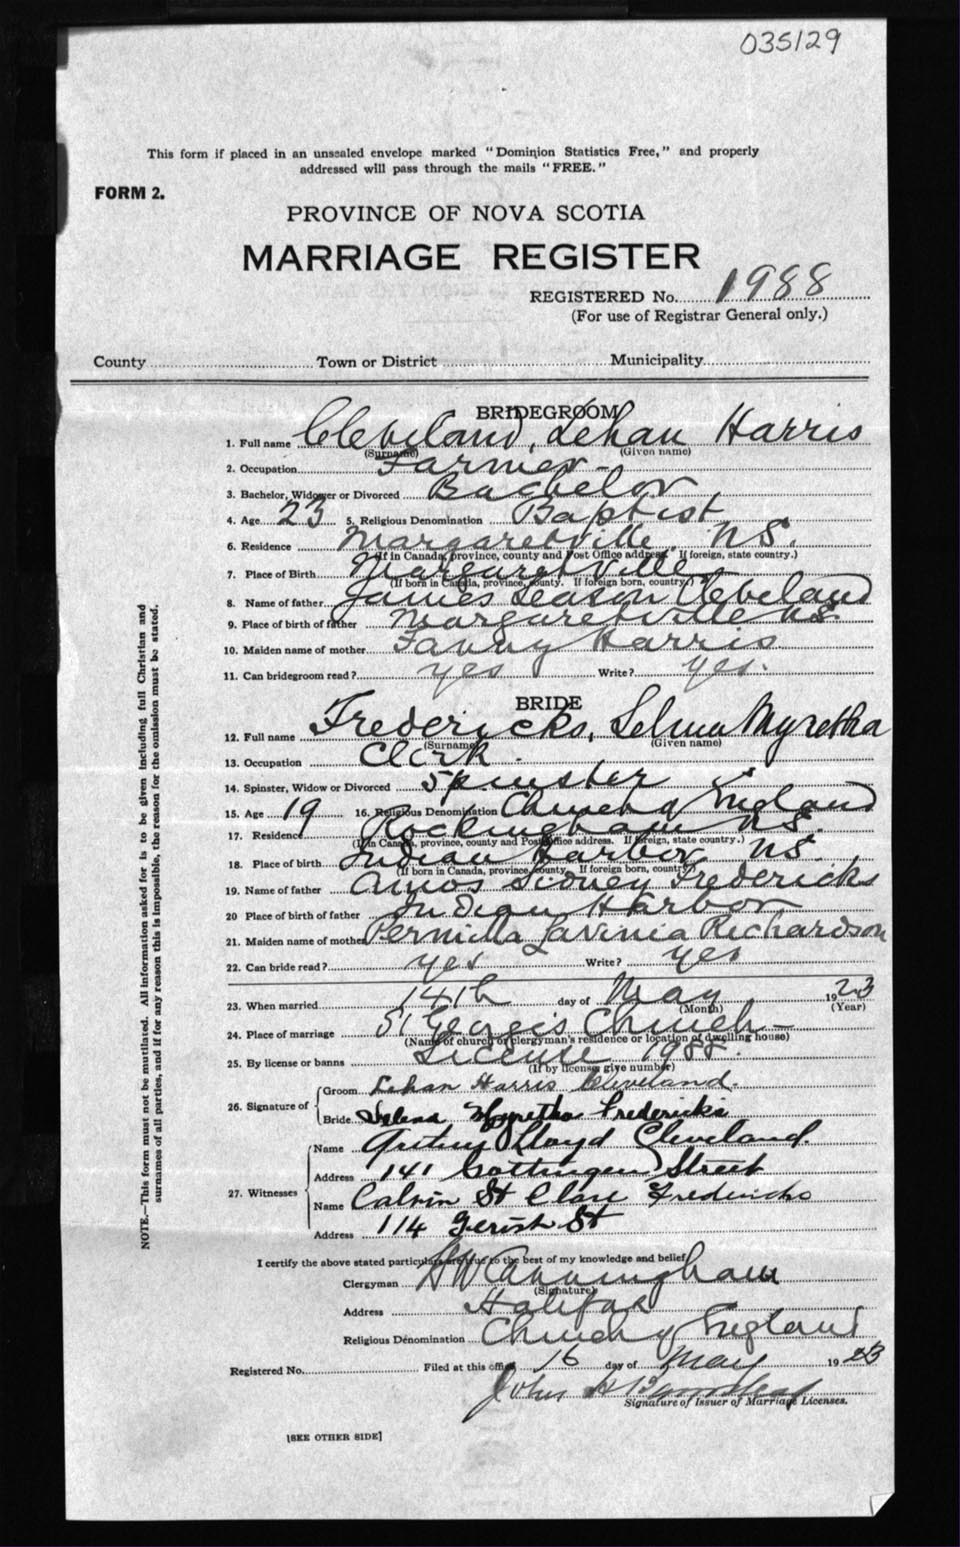 035129
This form if placed in an unsealed envelope marked "Dominion Statistics Free," and properly
addressed will pass through the mails "FREE."
FORM 2.
PROVINCE OF NOVA SCOTIA
MARRIAGE REGISTER
REGISTERED No. 1988
(For use of Registrar General only.)
County Town or District Municipality
BRIDEGROOM
1. Full name Cleveland, Lehan Harris
(Surname) (Given name)
2. Occupation Farmer
3. Bachelor, Widower or Divorced Bachelor
4. Age 23 5. Religious Denomination Baptist
6. Residence Margaretville N.S.
(If in Canada, province, county and Post Office address. If foreign, state country.)
7. Place of Birth Margaretville
(If born in Canada, province, county. If foreign born, country.)
8. Name of father James Leason Cleveland
9. Place of birth of father Margaretville N.S.
10. Maiden name of mother Fanny Harris
11. Can bridegroom read? yes Write? yes.
BRIDE
12. Full name Fredericks, Selma Myretha
(Surname) (Given name)
13. Occupation Clerk
14. Spinster, Widow or Divorced Spinster
15. Age 19 16. Religious Denomination Church of England
17. Residence Rockingham N.S.
(If in Canada, province, county and Post Office address. If foreign, state country.)
18. Place of birth Indian Harbor N.S.
(If born in Canada, province, county. If foreign born, country.)
19. Name of father Amos Sidney Fredericks
20 Place of birth of father Indian Harbor
21. Maiden name of mother Permilla Lavinia Richardson
22. Can bride read? yes Write? yes
23. When married 14th day of May 1923
(Month) (Year)
24. Place of marriage St Georges Church
(Name of church or clergyman's residence or location of dwelling house)
25. By license or banns License 1988.
(If by license give number)
26. Signature of Groom Lehan Harris Cleveland.
Bride Selena Myretha Fredericks
27. Witnesses Name Lloyd Cleveland.
Address 141 Gottingen Street
Name Calvin St Clare Fredericks
Address 114 Gerish St
I certify the above stated particulars are true to the best of my knowledge and belief
Clergyman Cunningham
(Signature)
Address Halifax
Religious Denomination Church of England
Registered No. Filed at this office 16 day of May 1923
John H
Signature of Issuer of Marriage Licenses.
[SEE OTHER SIDE]
NOTE.—This form must not be mutilated. All information asked for is to be given including full Christian and
surnames of all parties, and if for any reason this is impossible, the reason for the omission must be stated.